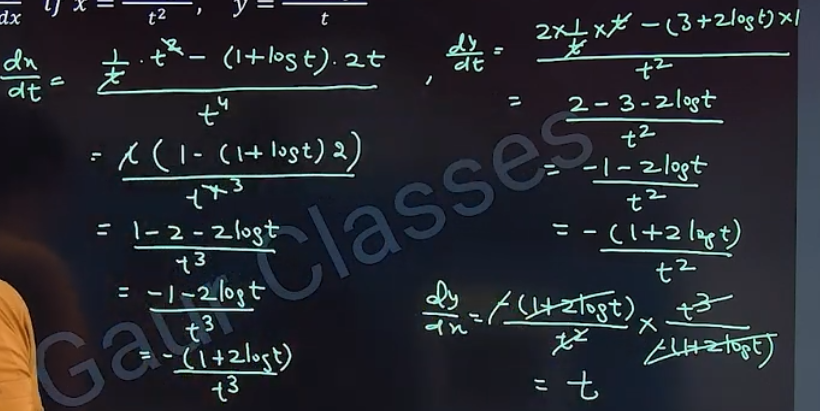 dx if x = t² , y = t
dx/dt = (1/t · t² - (1+logt) · 2t) / t⁴
= t(1 - (1+logt)2) / t⁴ ³
= (1-2-2logt) / t³
= (-1-2logt) / t³
= -(1+2logt) / t³
, dy/dt = (2×1/t×t - (3+2logt)×1) / t²
= (2-3-2logt) / t²
= (-1-2logt) / t²
= -(1+2logt) / t²
dy/dx = -(1+2logt) / t² × t³ / -(1+2logt)
= t
Gaur Classes